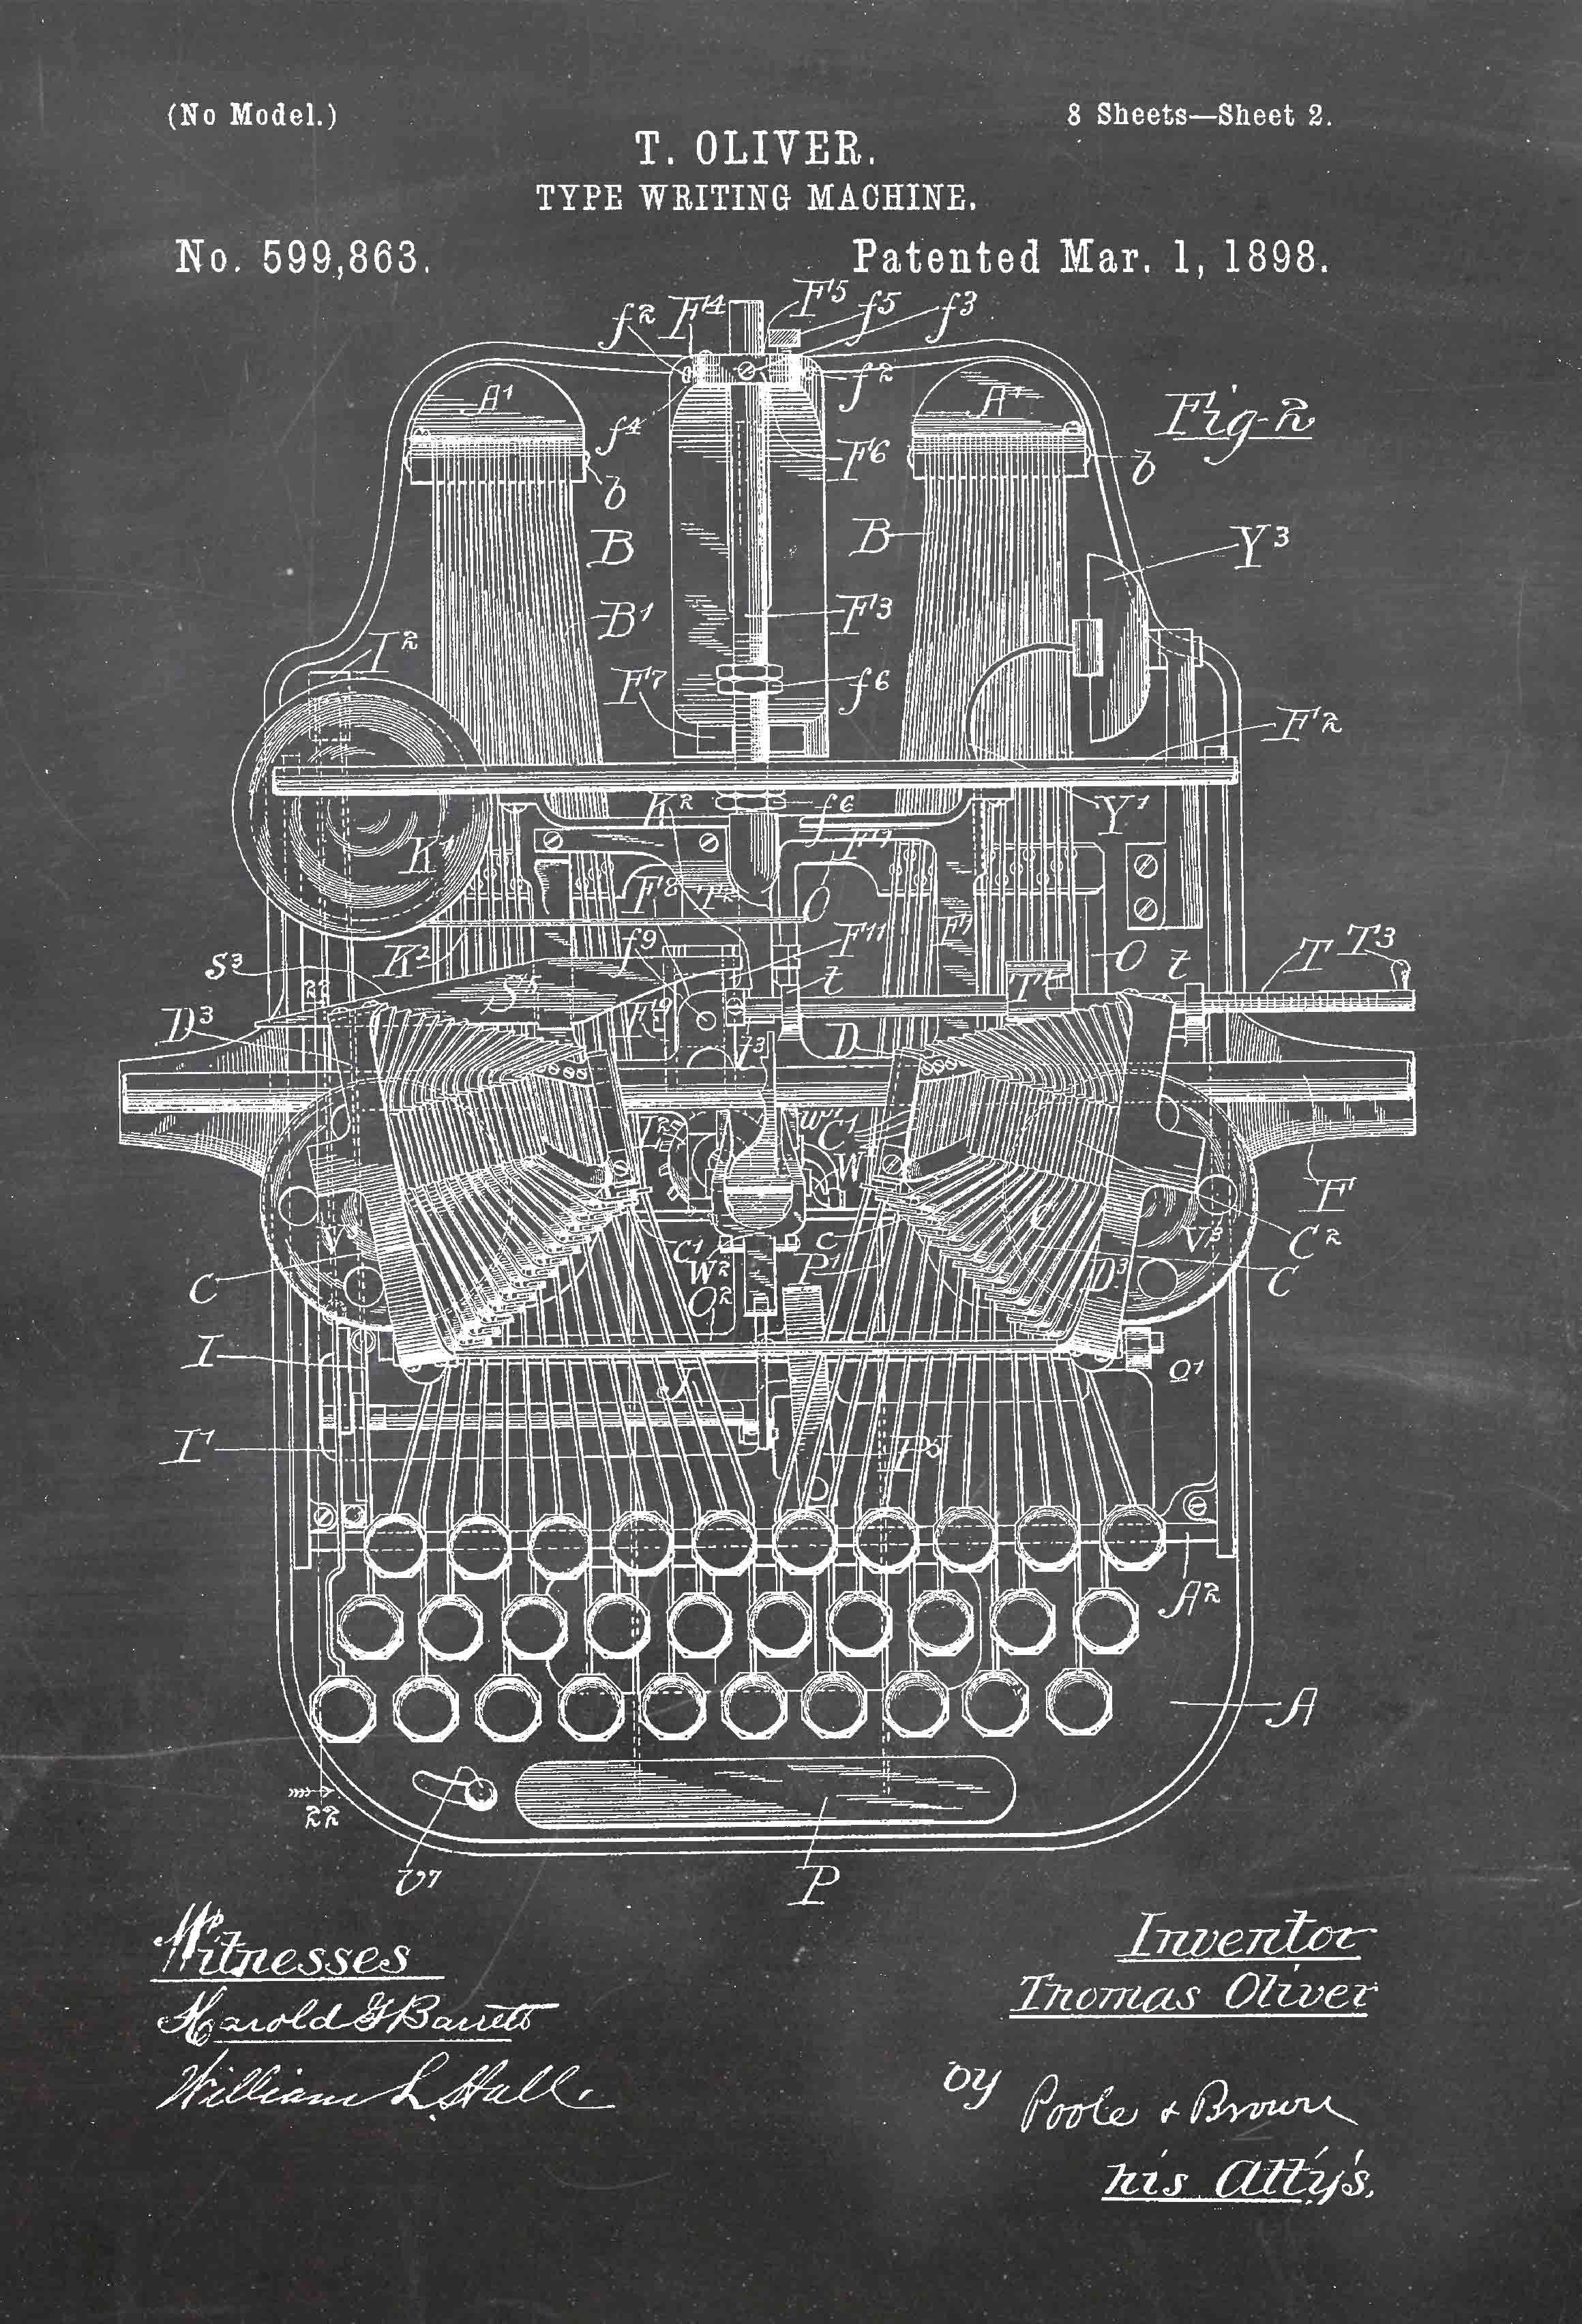 (No Model.)
8 Sheets—Sheet 2.
T. OLIVER.
TYPE WRITING MACHINE.
No. 599,863.
Patented Mar. 1, 1898.
f2 F4 F5 f5 f3
f2
A1 A1
Fig-2
f4
F6
b b
B B
Y3
B1 F3
I2
F7 f6
F2
K2 f6 Y1
K1
F8
O
f9 F11 F7
S3 K2 O t T T3
S5 t
22
D3
D
C1
W
F
V3 C2
C1 c
W2 P1 D3
C O2 C
I
J
O1
I1 P5
A2
A
22
v7
P
Witnesses
Harold G Barrett
William L. Hall.
Inventor
Thomas Oliver
by
Poole & Brown
his Att'ys.